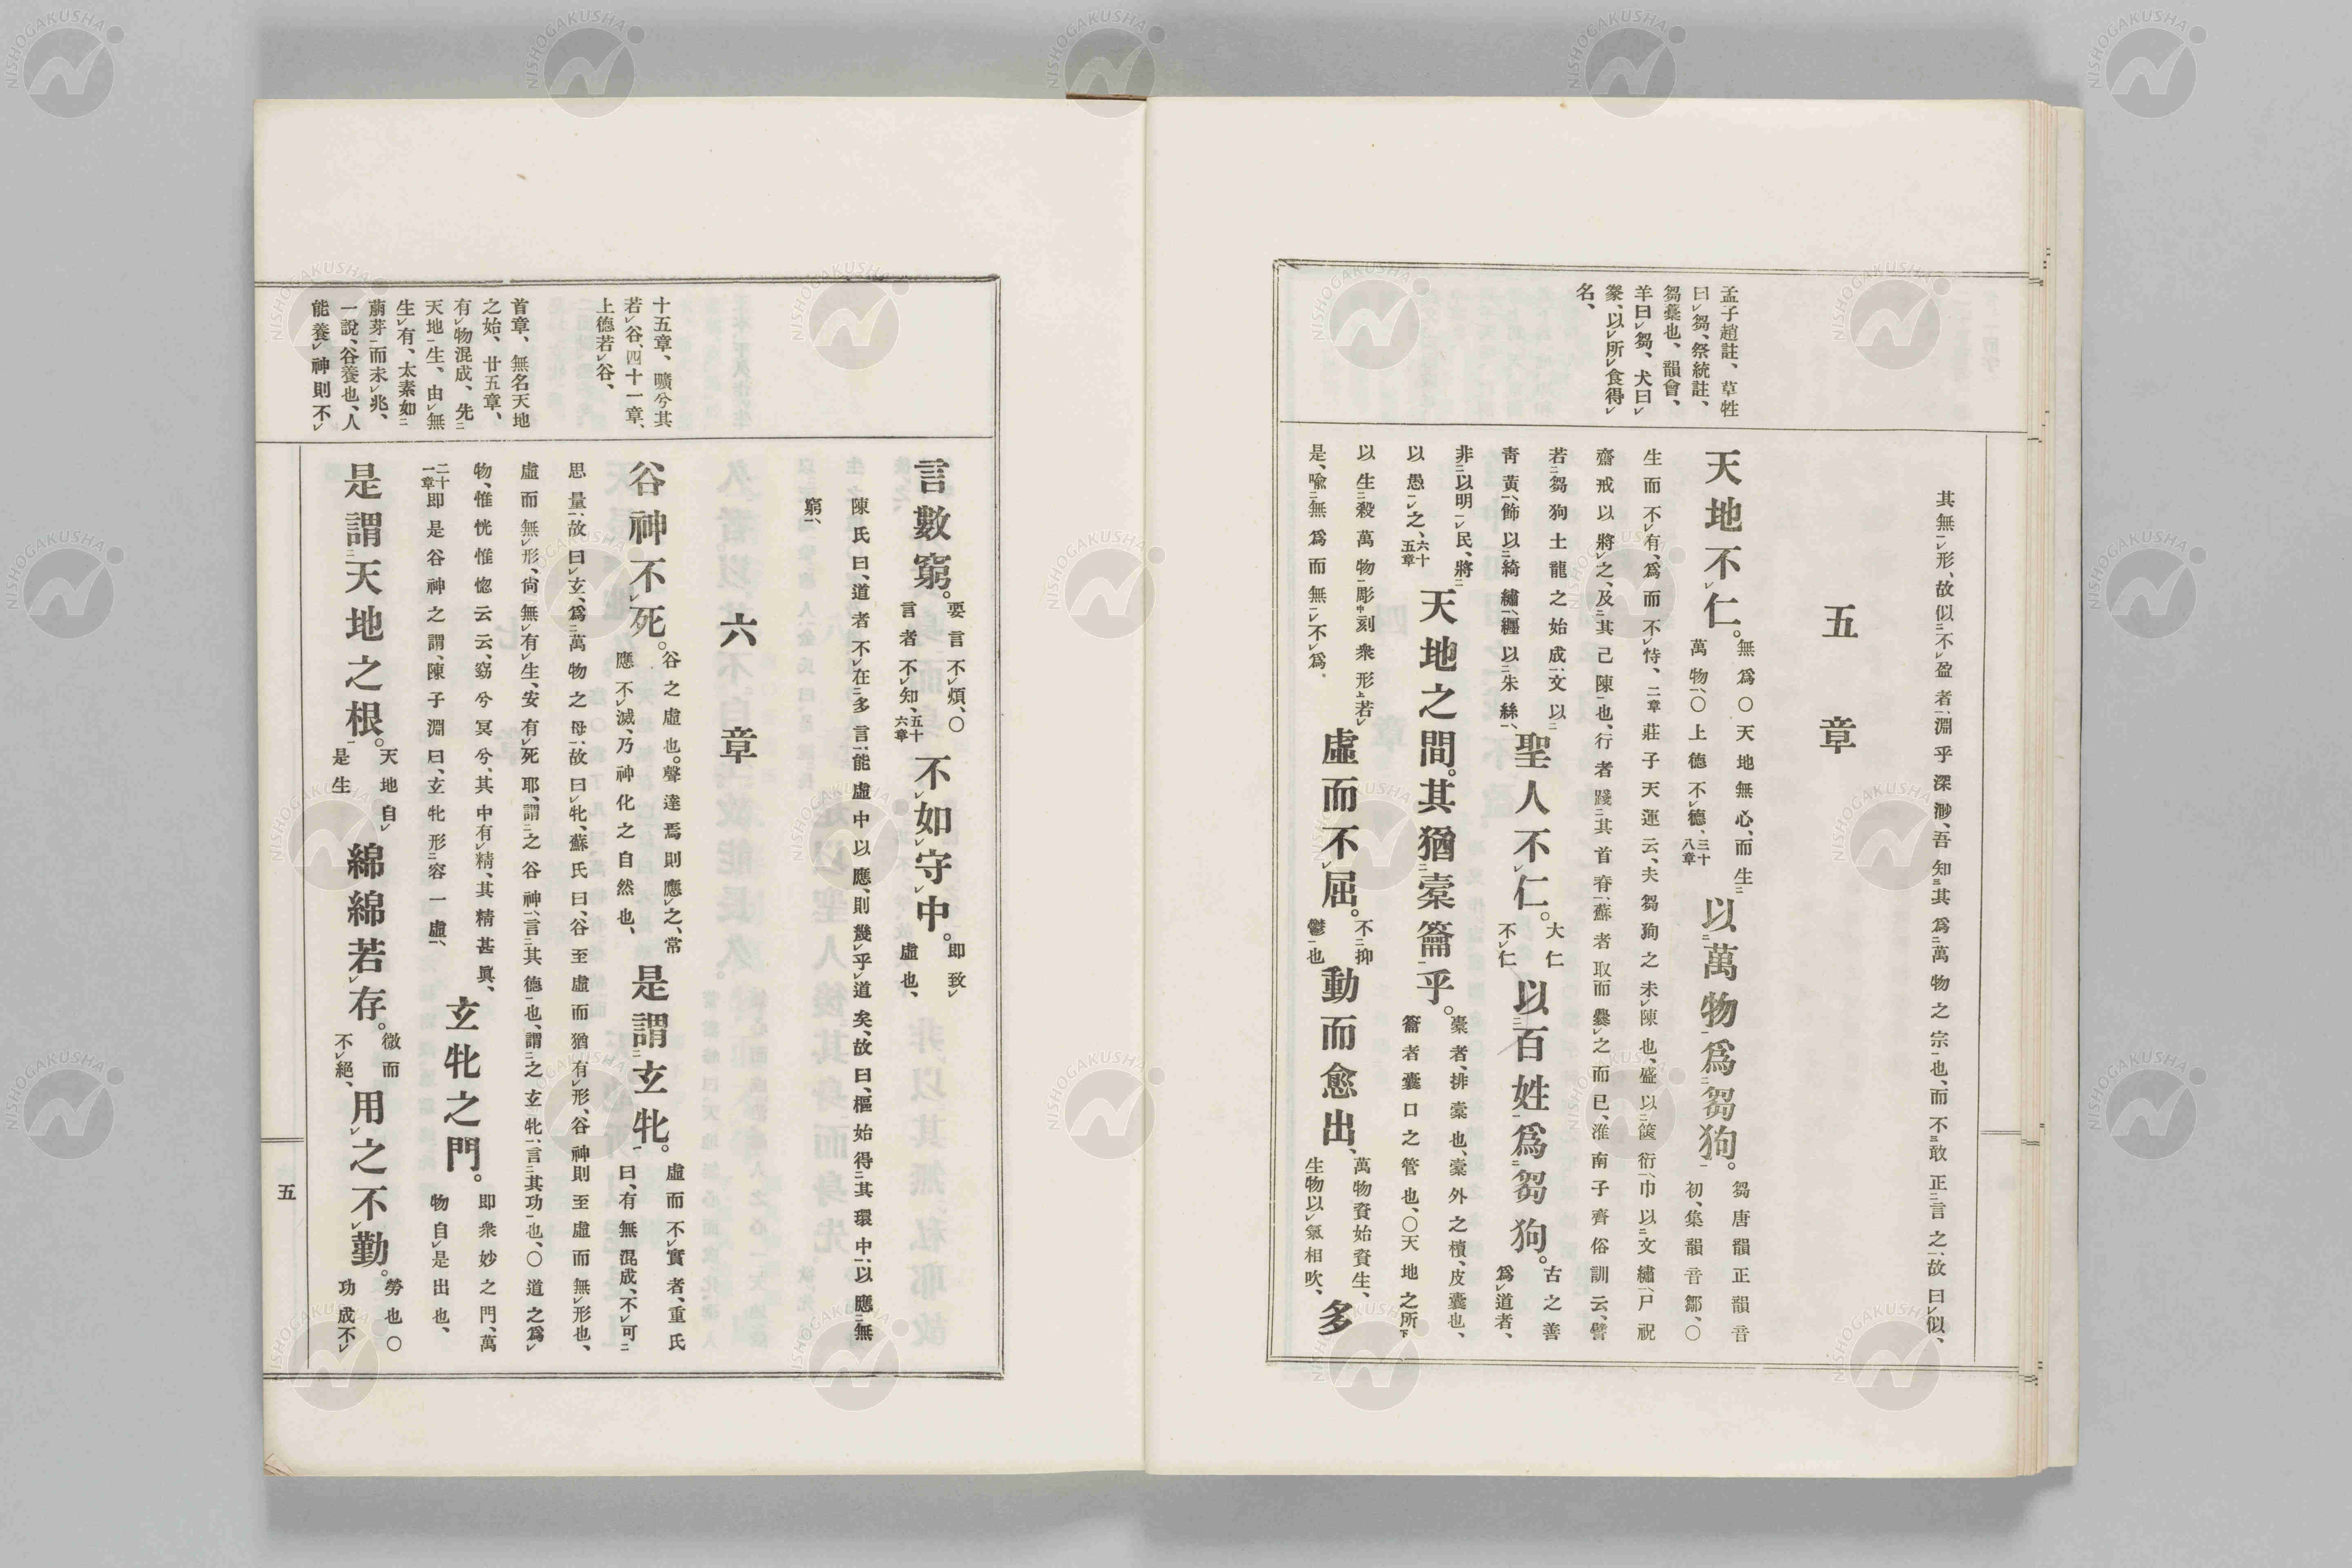 孟子趙註、草牲
曰芻、祭統註、
芻藁也、韻會、
羊曰芻、犬曰
豢、以所食得
名、
其無形、故似不盈者、淵乎深渺、吾知其爲萬物之宗也、而不敢正言之、故曰似、
五章
天地不仁。無爲〇天地無心、而生萬物、〇上德不德、三十八章以萬物爲芻狗。芻唐韻正韻音初、集韻音鄒、〇
生而不有、爲而不恃、二章莊子天運云、夫芻狗之未陳也、盛以篋衍、巾以文繡、尸祝
齋戒以將之、及其已陳也、行者踐其首脊、蘇者取而爨之而已、淮南子齊俗訓云、譬
若芻狗土龍之始成、文以靑黃、飾以綺繡、纒以朱絲、聖人不仁。大仁不仁以百姓爲芻狗。古之善爲道者、
非以明民、將以愚之、六十五章天地之間。其猶橐籥乎。橐者、排橐也、橐外之櫝、皮囊也、籥者囊口之管也、〇天地之所
以生殺萬物彫刻衆形若是、喩無爲而無不爲、虛而不屈。不抑鬱也動而愈出、萬物資始資生、生物以氣相吹、多
十五章、曠兮其
若谷、四十一章、
上德若谷、
首章、無名天地
之始、廿五章、
有物混成、先
天地生、由無
生有、太素如
萠芽而未兆、
一說、谷養也、人
能養神則不
言數窮。要言不煩、〇言者不知、五十六章不如守中。即致虛也、
陳氏曰、道者不在多言、能虛中以應、則幾乎道矣、故曰、樞始得其環中、以應無
窮、
六章
谷神不死。谷之虛也。聲達焉則應之、常應不滅、乃神化之自然也、是謂玄牝。虛而不實者、重氏曰、有無混成、不可
思量、故曰玄、爲萬物之母、故曰牝、蘇氏曰、谷至虛而猶有形、谷神則至虛而無形也、
虛而無形、尙無有生、安有死耶、謂之谷神、言其德也、謂之玄牝、言其功也、〇道之爲
物、惟恍惟惚云云、窈兮冥兮、其中有精、其精甚眞、二十一章即是谷神之謂、陳子淵曰、玄牝形容一虛、玄牝之門。即衆妙之門、萬物自是出也、
是謂天地之根。天地自是生綿綿若存。微而不絕、用之不勤。勞也〇功成不
五
NISHOGAKUSHA